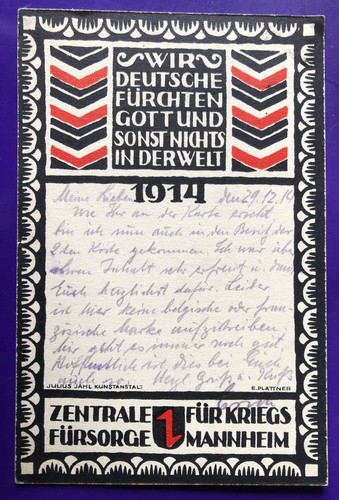 WIR
DEUTSCHE
FÜRCHTEN
GOTT UND
SONST NICHTS
IN DER WELT
1914
Meine Lieben! den 29.12.14
Wie Ihr an der Karte ersieht
bin ich nun auch in den Besitz der
2 ten Karte gekommen. Ich war über
deren Inhalt sehr erfreut u. danke
Euch herzlichst dafür. Leider
ist hier keine belgische oder fran-
zösische Marke aufzutreiben
Mir geht es immer noch gut
Hoffentlich ist dies bei Euch
auch so. Gruß u. Kuß
JULIUS JAHL KUNSTANSTALT
E. PLATTNER
ZENTRALE FÜR KRIEGS
FÜRSORGE MANNHEIM